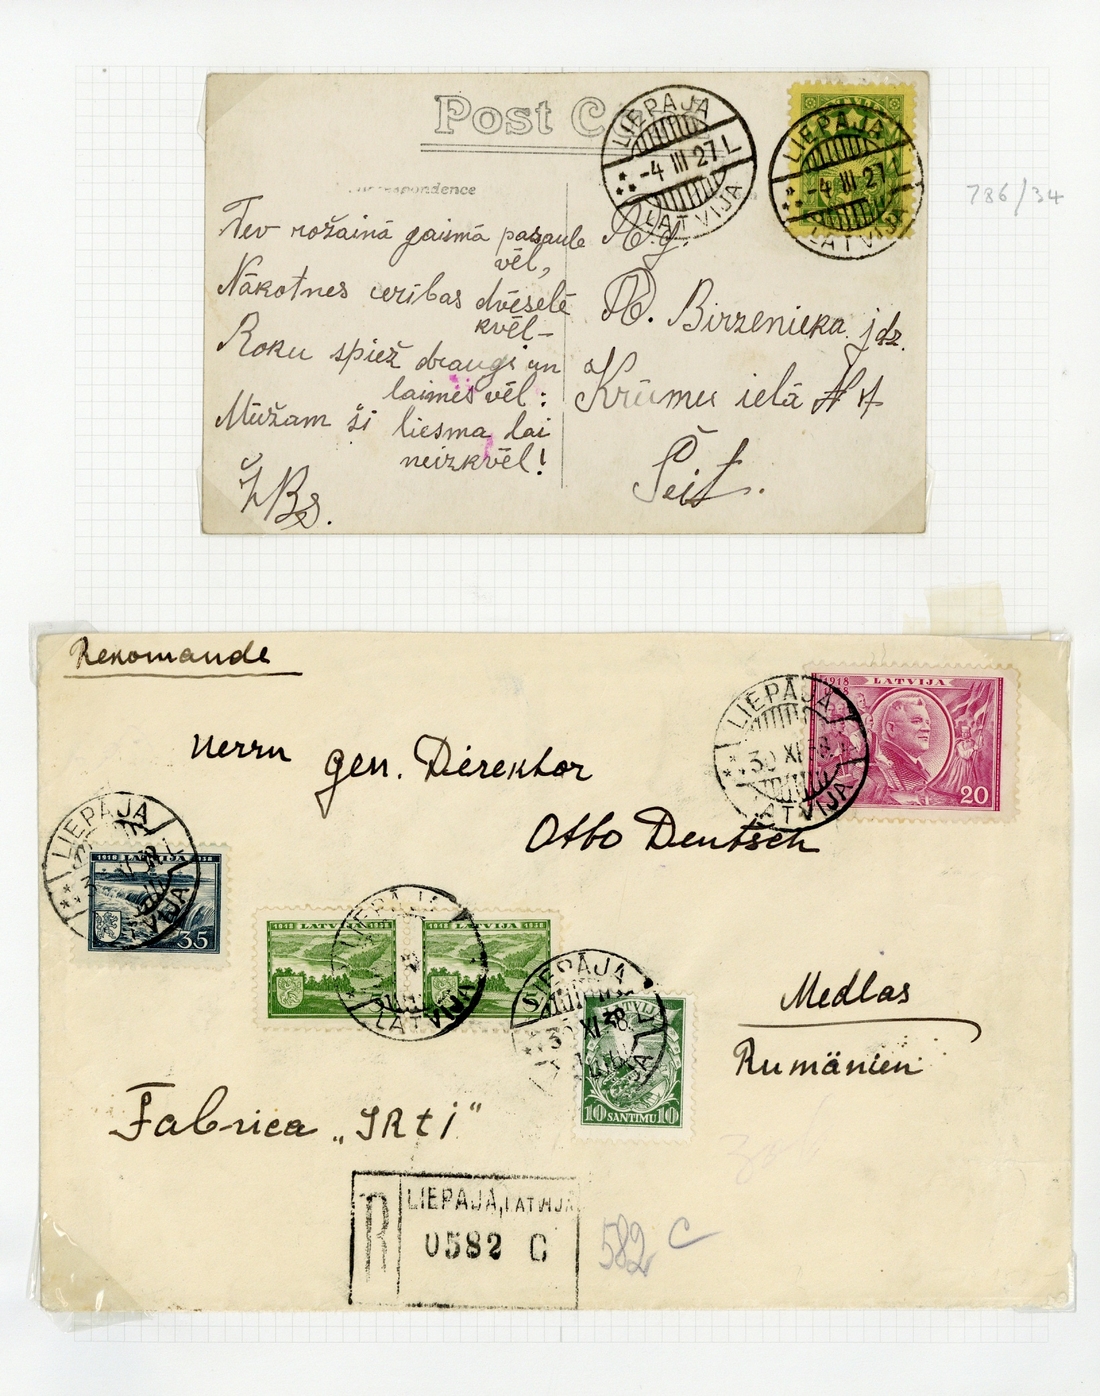 Post C
LIEPĀJA
-4 III 27 L
LATVIJA
LIEPĀJA
-4 III 27 L
LATVIJA
786/34
Correspondence
Tev rožainā gaismā pasaule
vēl,
Nākotnes cerības dvēselē
kvēl –
Roku spiež draugi un
laimes vēl:
Mūžam ši liesma lai
neizkvēl!
ŽBs.
A. g.
A. Birzenieka jdz.
Krūmu ielā № 1
Šeit.
Rekomande
Herrn gen. Direktor
Otto Deutsch
Medlas
Rumänien
Fabrica „IRtI"
1918 LATVIJA
1938
20
LIEPĀJA
30 XI 38
LATVIJA
LIEPĀJA
LATVIJA
1918 LATVIJA 1938
35
LIEPĀJA
LATVIJA
1918 LATVIJA 1938
1918 LATVIJA 1938
LIEPĀJA
30 XI 38
LATVIJA
10 SANTIMU 10
R LIEPAJA, LATVIJA
0582 C
582 C